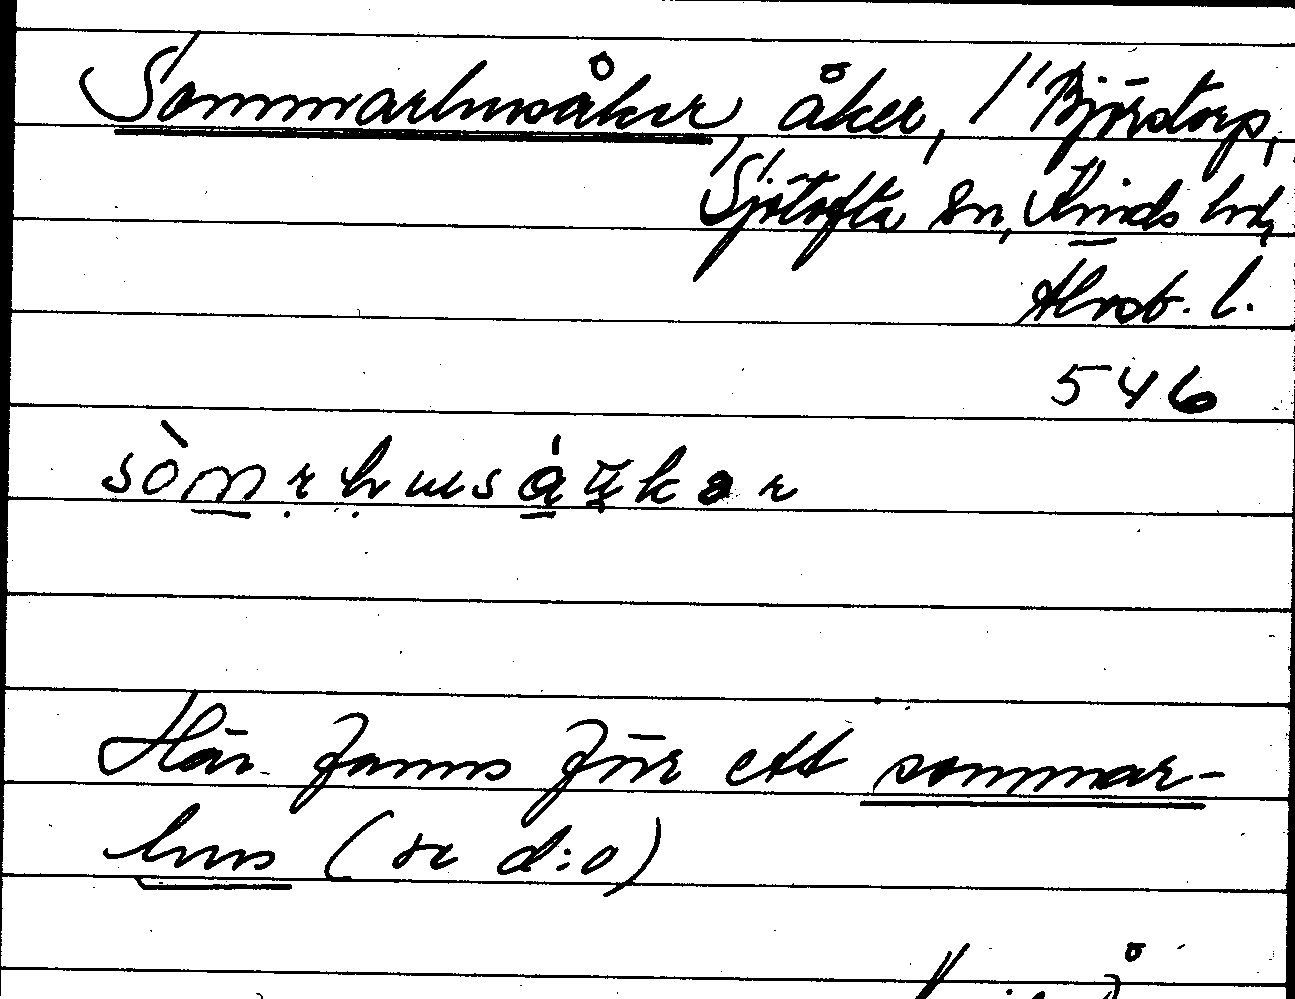 Sommarhusåker åker, 1 Björstorp,
Sjötofta sn, Kinds hd,
Älvsb. l.
546
Här fanns förr ett sommar-
hus (se d:o)